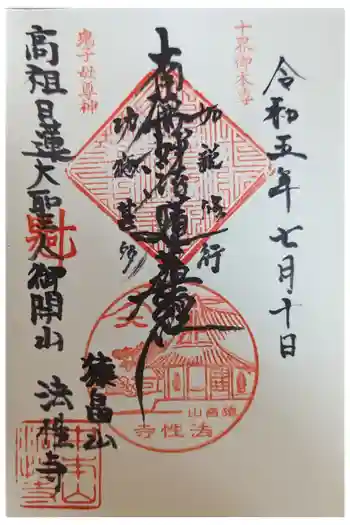 令和五年七月十日
十界御本尊
加範修行
南無妙法蓮華経
功徳
鬼子母尊神
高祖日蓮大聖人御開山
猿畠山
法性寺
猿畠山
法性寺